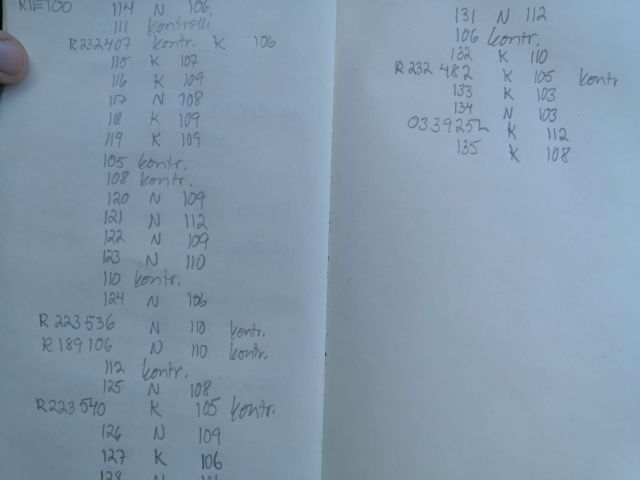 114 N 106
111 kontrolli
R232407 kontr. K 106
115 K 107
116 K 109
117 N 108
118 K 109
119 K 109
105 kontr.
108 kontr.
120 N 109
121 N 112
122 N 109
123 N 110
110 kontr.
124 N 106
R223536 N 110 kontr.
R189106 N 110 kontr.
112 kontr.
125 N 108
R223540 K 105 kontr.
126 N 109
127 K 106
128 N
131 N 112
106 kontr.
132 K 110
R232482 K 105 kontr
133 K 103
134 N 103
K 112
135 K 108